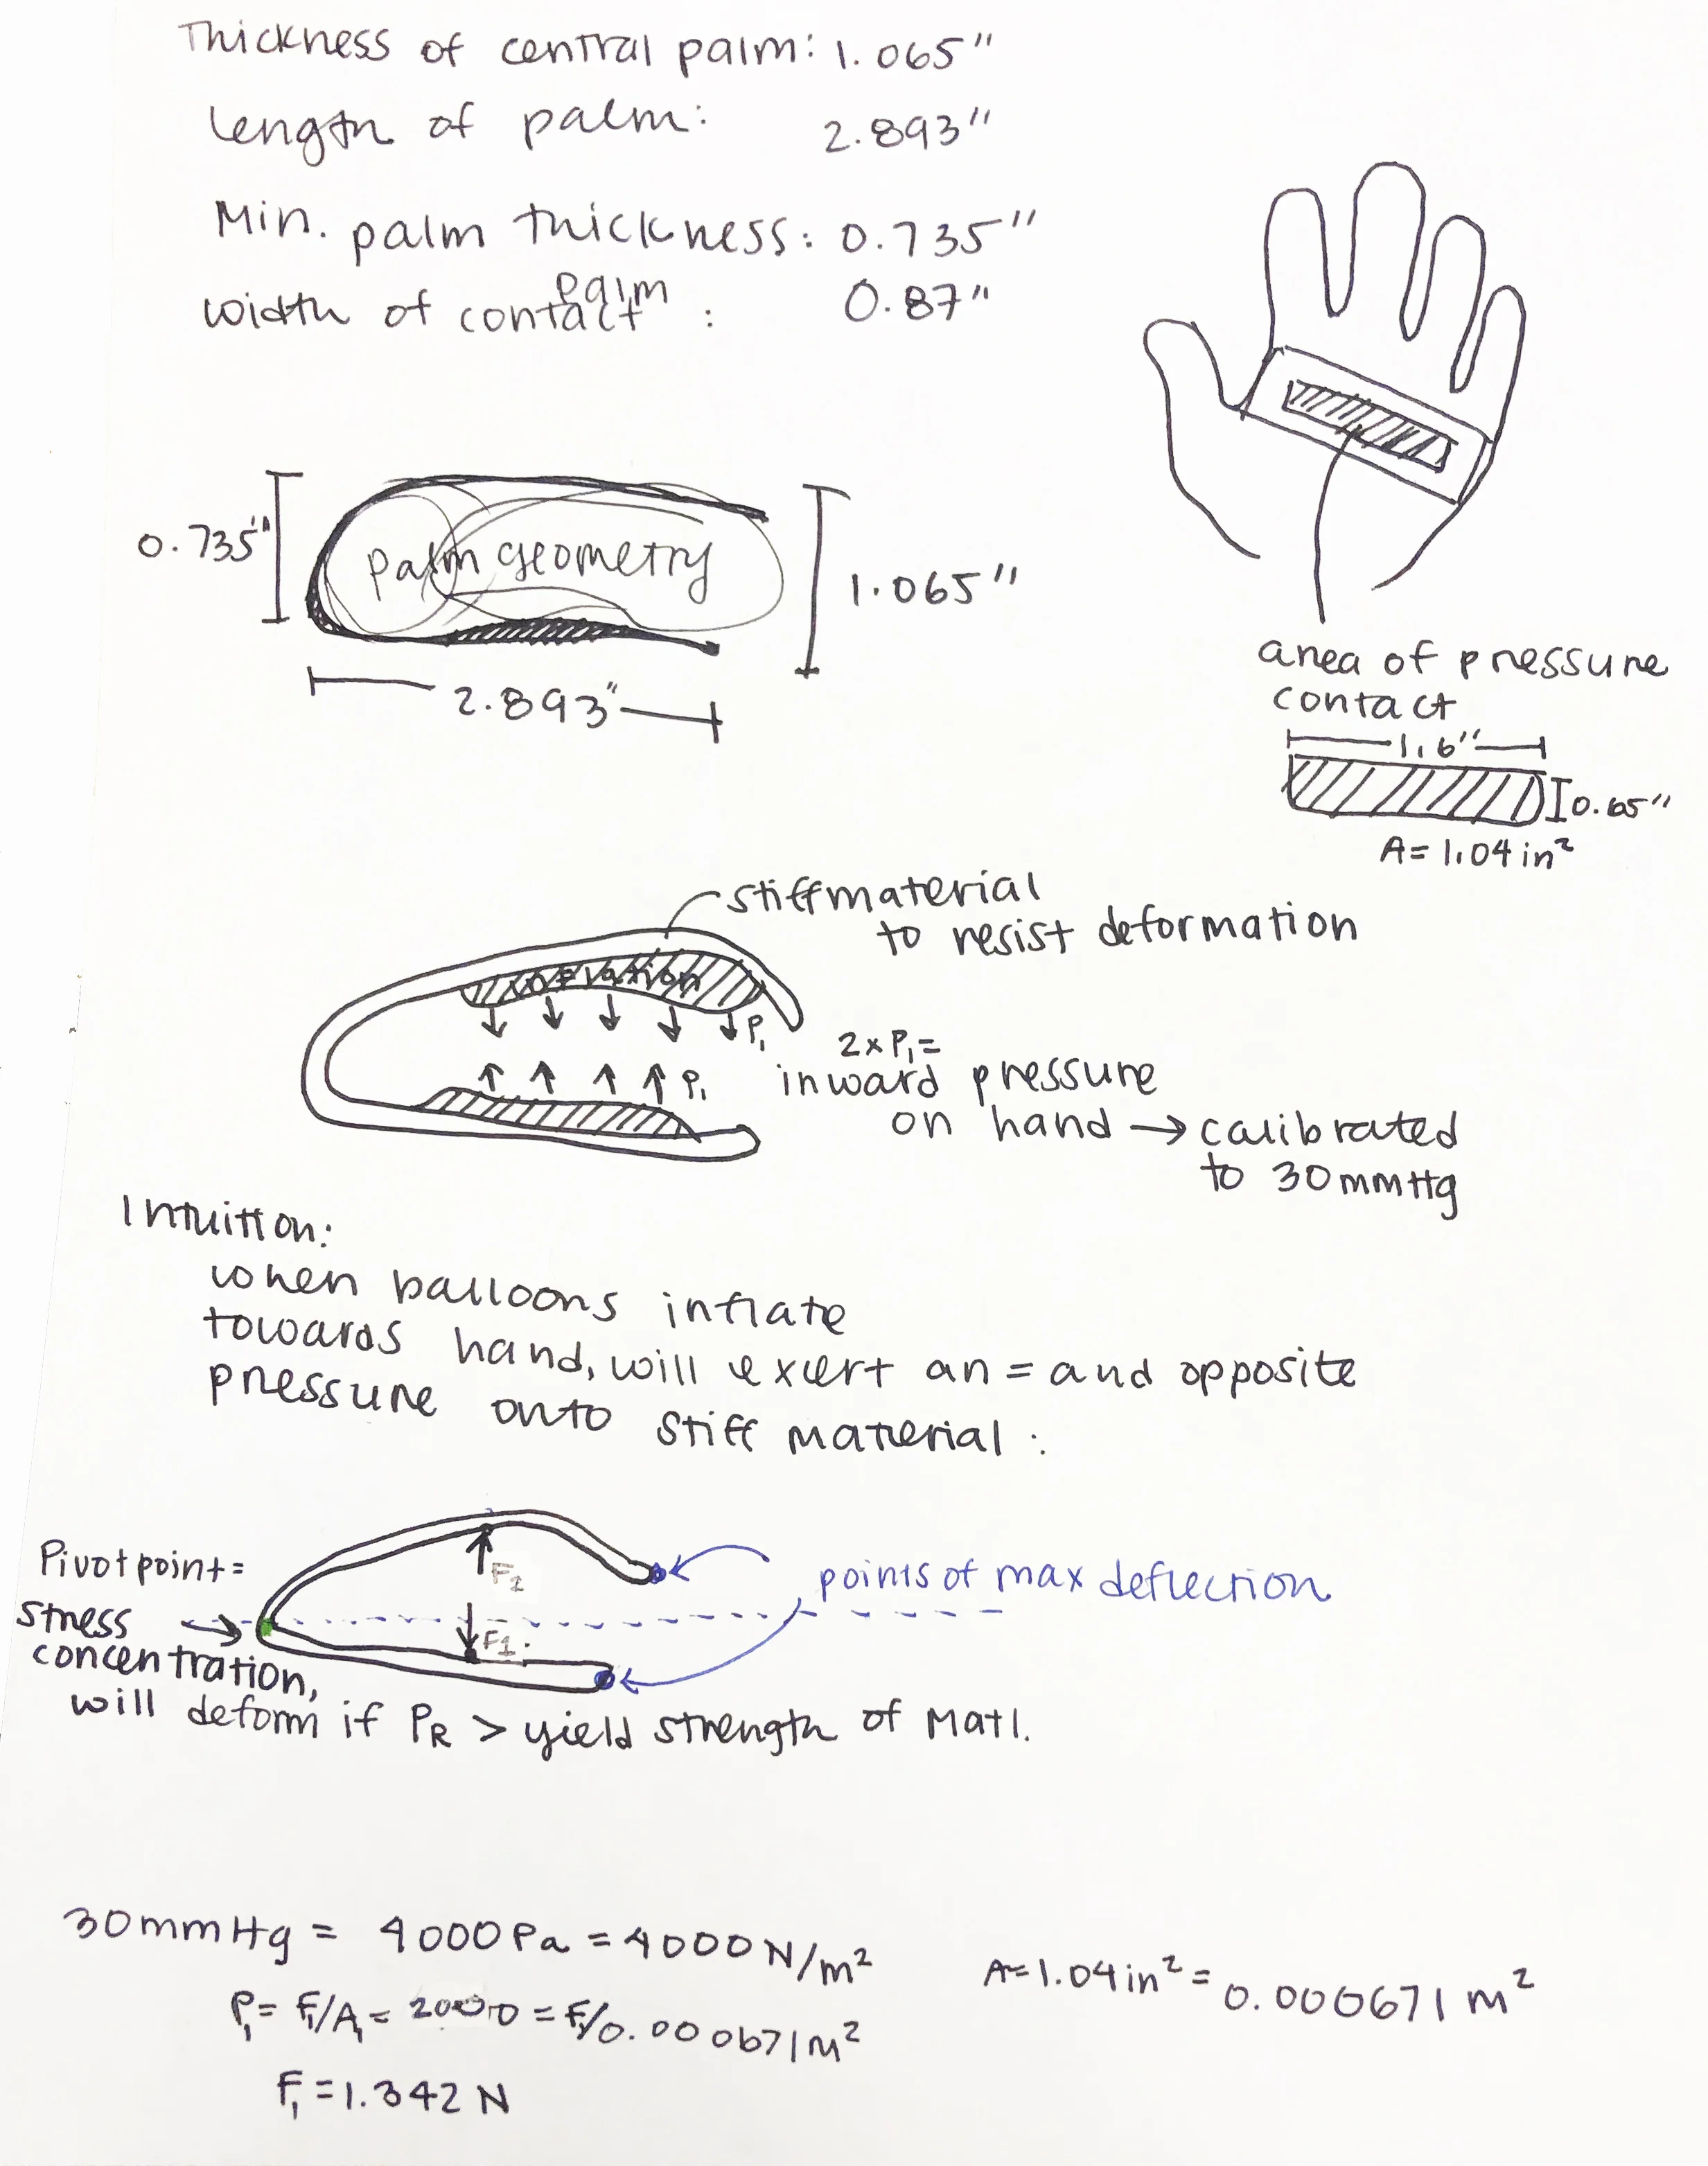 Thickness of central palm: 1.065"
Length of palm: 2.893"
Min. palm thickness: 0.735"
width of contact palm : 0.87"
0.735"
palm geometry
1.065"
2.893"
area of pressure
contact
1.6"
0.65"
A = 1.04 in²
stiff material
to resist deformation
P₁
2 x P₁ =
P₁
inward pressure
on hand → calibrated
to 30 mmHg
Intuition:
when balloons inflate
towards hand, will exert an = and opposite
pressure onto stiff material :
Pivot point =
stress
concentration,
will deform if PR > yield strength of Matl.
F2
F1
points of max deflection
30mmHg = 4000 Pa = 4000 N/m²
A = 1.04 in² = 0.000671 m²
P₁ = F₁/A₁ = 2000 = F₁/0.000671 m²
F₁ = 1.342 N